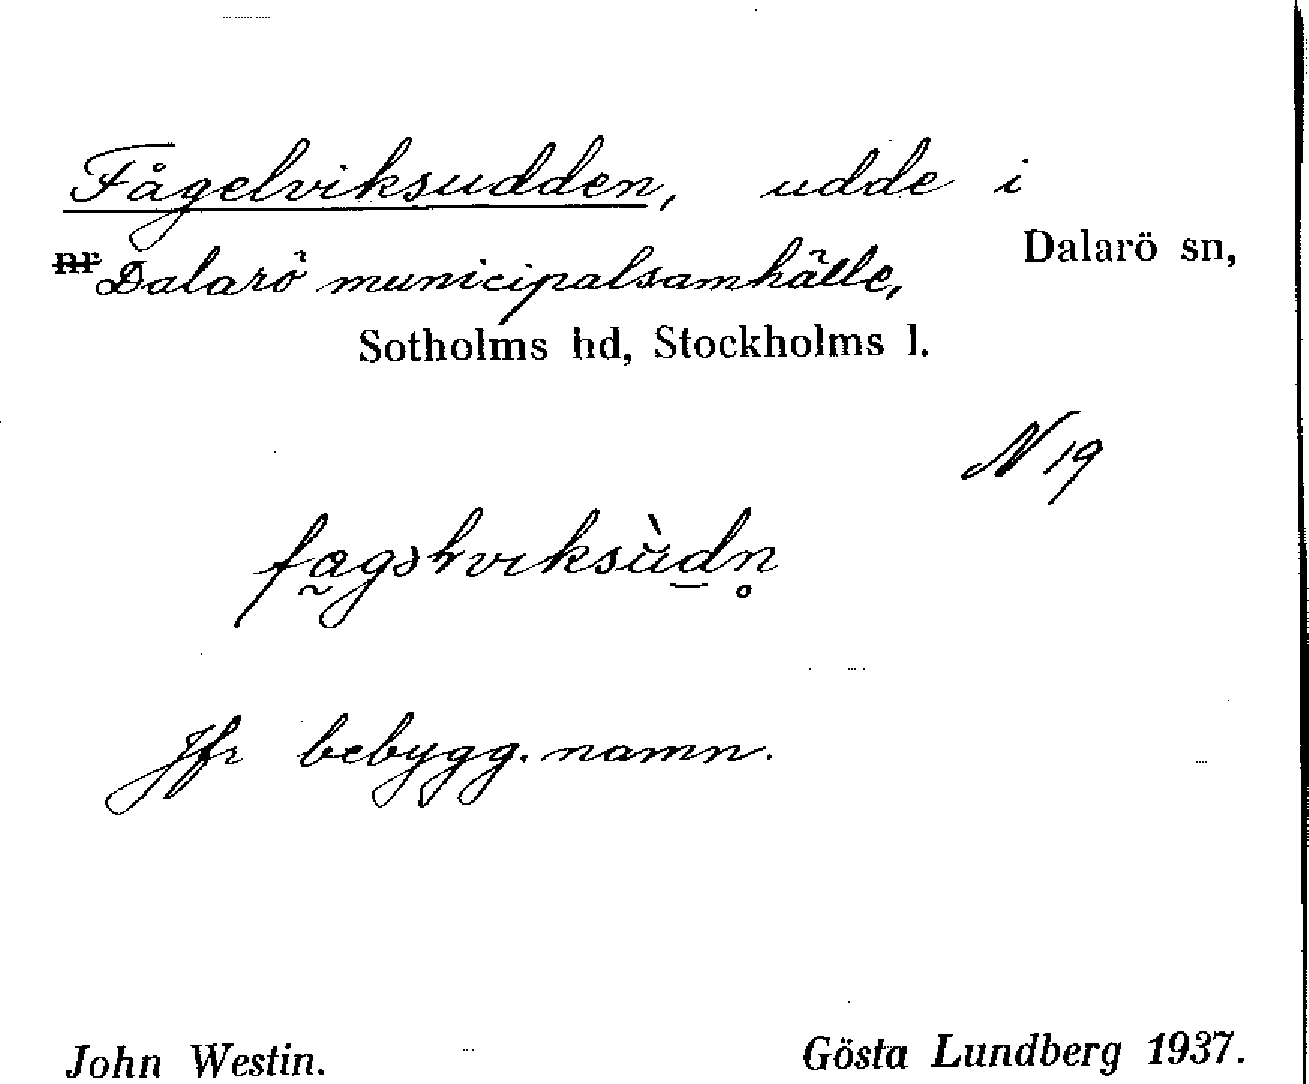 Fågelviksudden, udde i
Dalarö sn,
nr Dalarö municipalsamhälle,
Sotholms hd, Stockholms l.
N 19
Jfr bebygg. namn.
John Westin. Gösta Lundberg 1937.